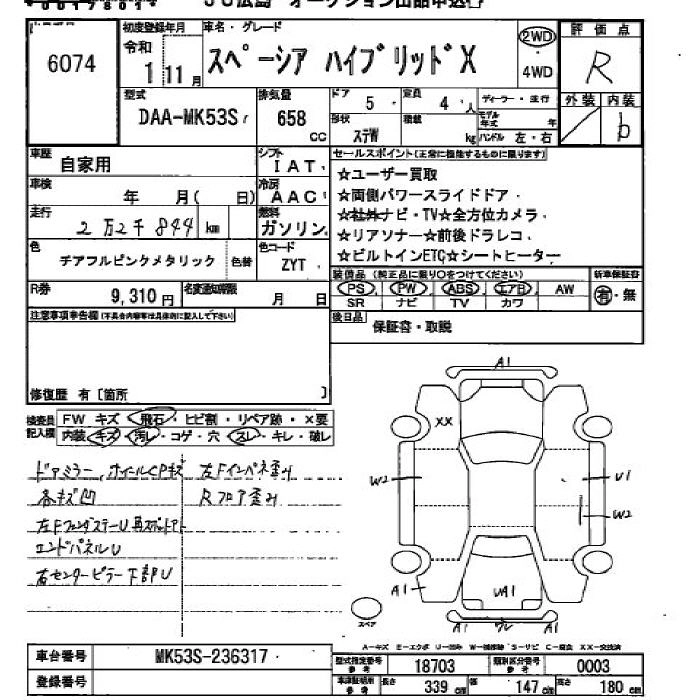 6074
初度登録年月
令和
1 11月
車名・グレード
スペーシア ハイブリッドX
2WD
・
4WD
評価点
R
外装 内装
b
型式
DAA-MK53S
排気量
658
cc
ドア
5
定員
4 人
ディーラー・並行
形状
ステW
積載
kg
モデル年式 年
ハンドル 左・右
車歴
自家用
シフト
IAT
車検
年 月( 日)
冷房
AAC
走行
2万2千844 km
燃料
ガソリン
色
チアフルピンクメタリック
色替
色コード
ZYT
R券
9,310円
名変通知期限
月 日
セールスポイント(正常に機能するものに限ります)
☆ユーザー買取
☆両側パワースライドドア
☆社外ナビ・TV☆全方位カメラ
☆リアソナー☆前後ドラレコ
☆ビルトインETC☆シートヒーター
装備品(純正品に限り○をつけてください)
PS PW ABS エアB AW
SR ナビ TV カワ
新車保証書
有・無
後日品
保証書・取説
注意事項申告欄(不具合内容等は具体的に記入して下さい)
修復歴 有〔箇所 〕
検査員記入欄
FW キズ・飛石・ヒビ割・リペア跡・×要
内装・キズ・汚レ・コゲ・穴・スレ・キレ・破レ
ドアミラー、ホイールCPキズ
各キズ凹
左FフェンダステーU再スポットアト
エンドパネルU
右センターピラー下部U
左Fインパネ歪み
Rフロア歪み
A1
XX
W2
U1
W2
A1
UA1
A1
A1
スペア
A-キズ E-エクボ U-凹み W-補修跡 S-サビ C-腐食 XX-交換済
車台番号
MK53S-236317
登録番号
型式指定番号 参考
18703
類別区分番号 参考
0003
車検証明用 参考
長さ 339 cm
幅 147 cm
高さ 180 cm